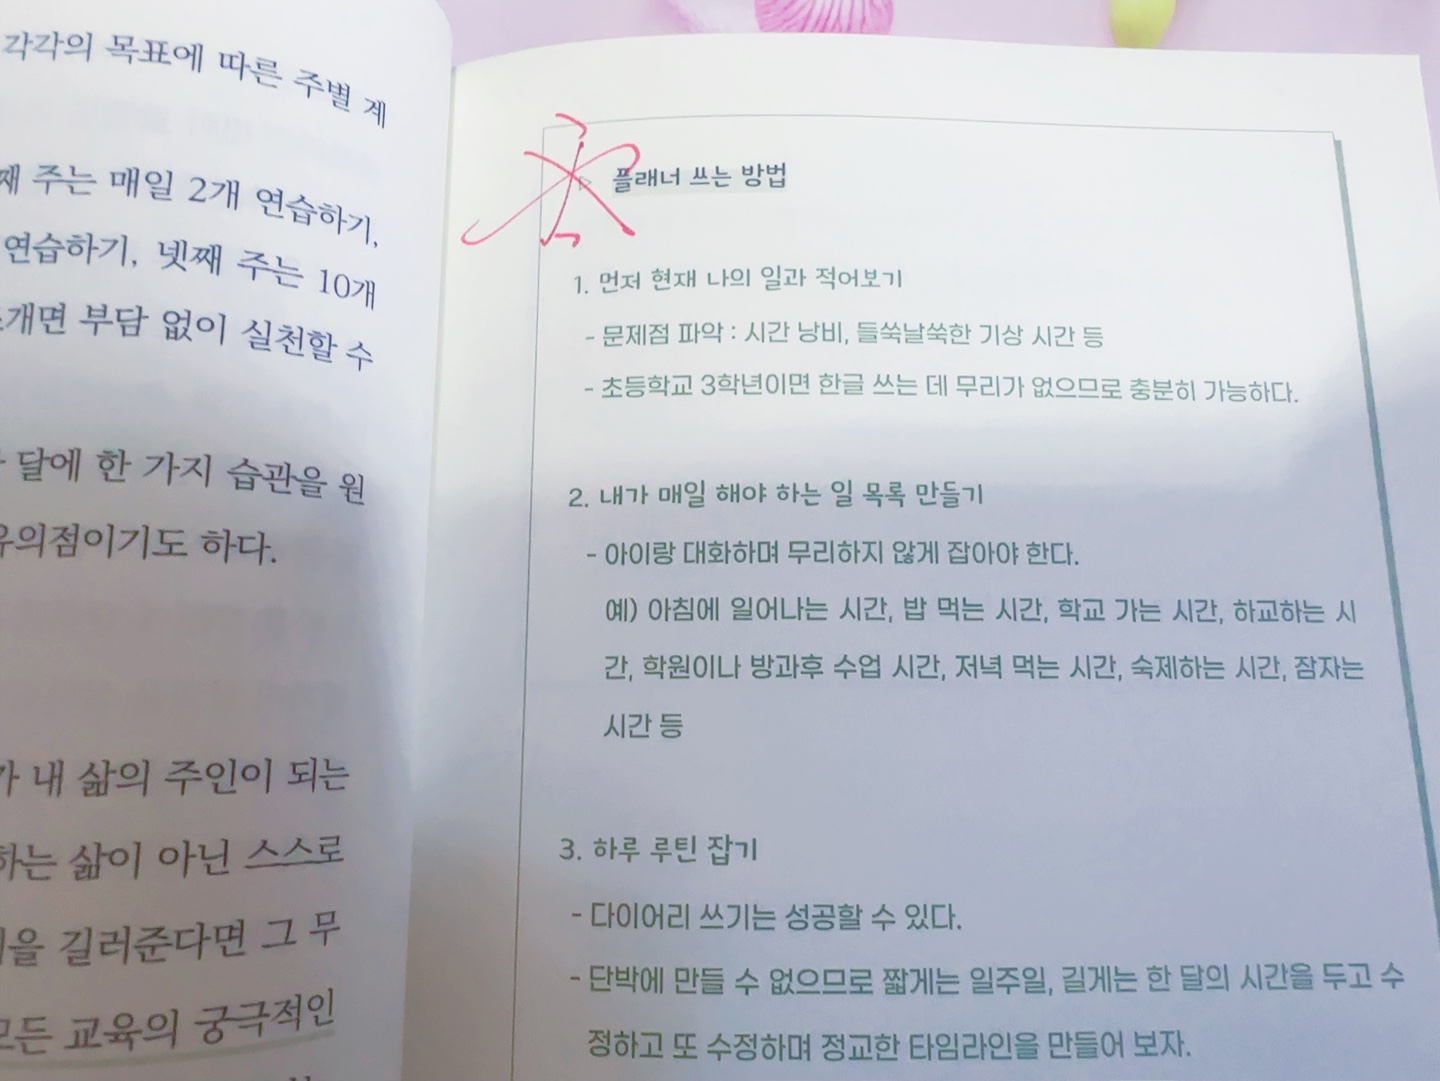 각각의 목표에 따른 주별 계
째 주는 매일 2개 연습하기,
연습하기, 넷째 주는 10개
개면 부담 없이 실천할 수
달에 한 가지 습관을 원
유의점이기도 하다.
내 삶의 주인이 되는
하는 삶이 아닌 스스로
을 길러준다면 그 무
모든 교육의 궁극적인
▷ 플래너 쓰는 방법
1. 먼저 현재 나의 일과 적어보기
- 문제점 파악 : 시간 낭비, 들쑥날쑥한 기상 시간 등
- 초등학교 3학년이면 한글 쓰는 데 무리가 없으므로 충분히 가능하다.
2. 내가 매일 해야 하는 일 목록 만들기
- 아이랑 대화하며 무리하지 않게 잡아야 한다.
예) 아침에 일어나는 시간, 밥 먹는 시간, 학교 가는 시간, 하교하는 시
간, 학원이나 방과후 수업 시간, 저녁 먹는 시간, 숙제하는 시간, 잠자는
시간 등
3. 하루 루틴 잡기
- 다이어리 쓰기는 성공할 수 있다.
- 단박에 만들 수 없으므로 짧게는 일주일, 길게는 한 달의 시간을 두고 수
정하고 또 수정하며 정교한 타임라인을 만들어 보자.